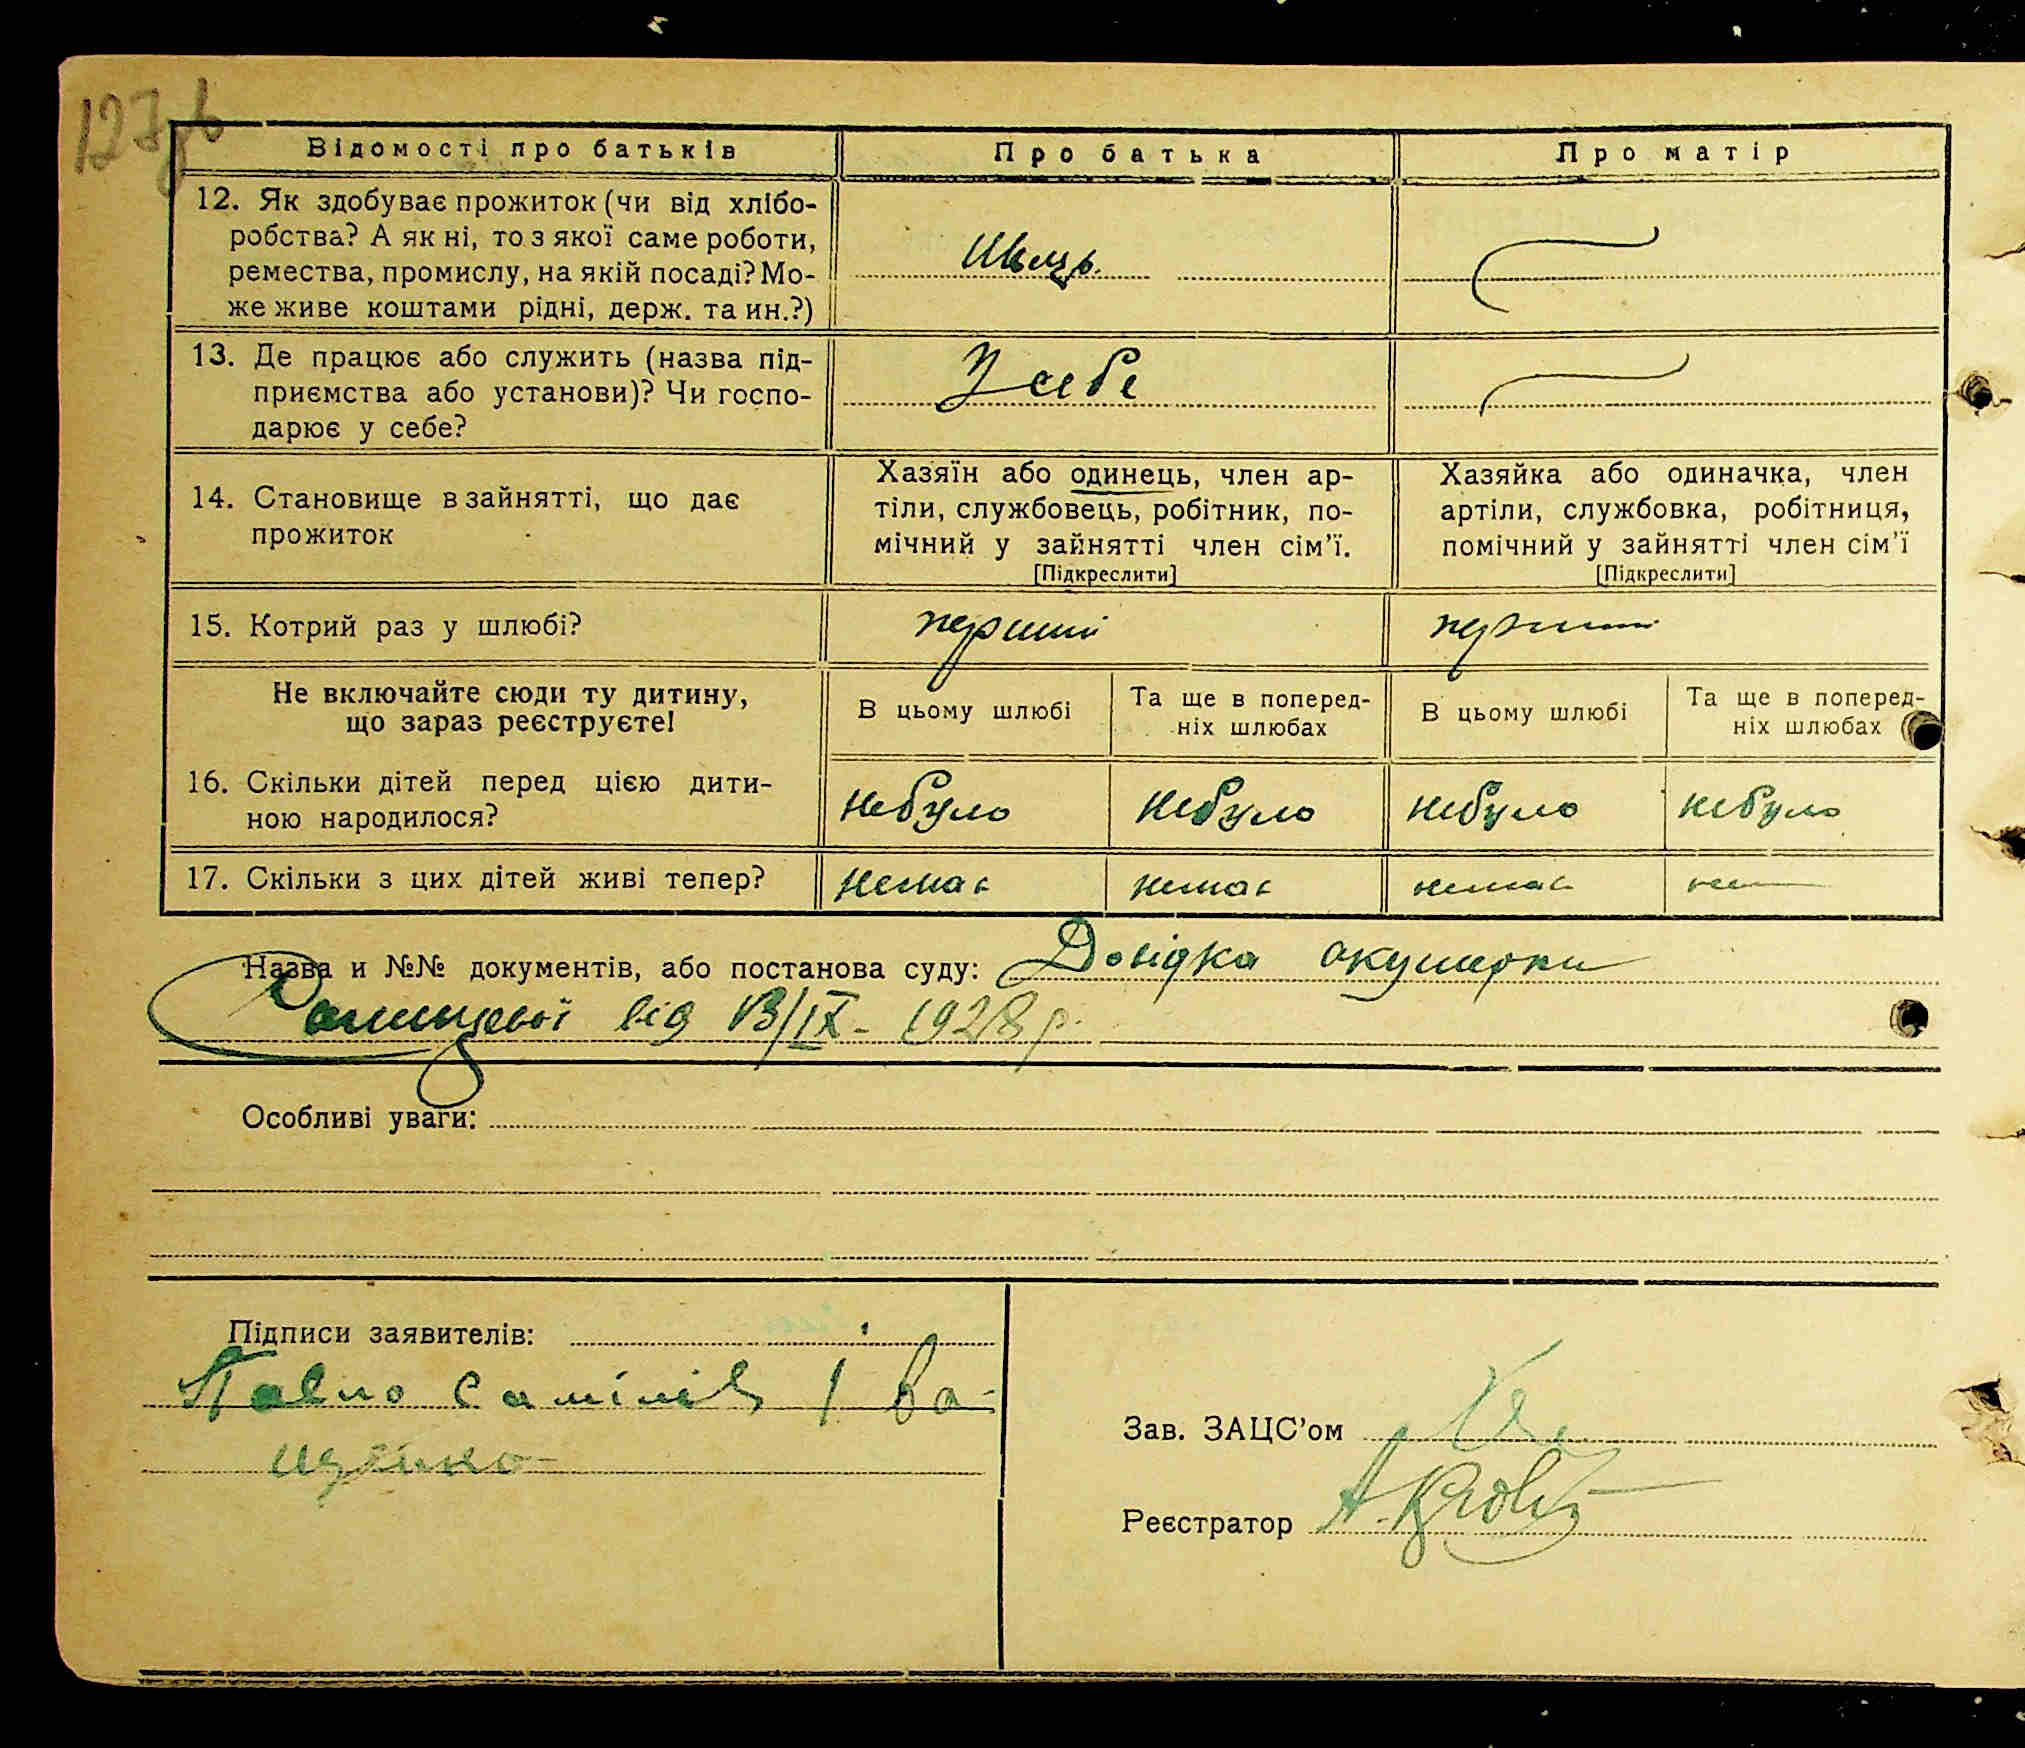 127зв
Відомості про батьків
Про батька
Про матір
12. Як здобуває прожиток (чи від хлібо-
робства? А як ні, то з якої саме роботи,
ремества, промислу, на якій посаді? Мо-
же живе коштами рідні, держ. та ин.?)
Швець.
13. Де працює або служить (назва під-
приємства або установи)? Чи госпо-
дарює у себе?
У себе
14. Становище в зайнятті, що дає
прожиток
Хазяїн або одинець, член ар-
тіли, службовець, робітник, по-
мічний у зайнятті член сім'ї.
[Підкреслити]
Хазяйка або одиначка, член
артіли, службовка, робітниця,
помічний у зайнятті член сім'ї
[Підкреслити]
15. Котрий раз у шлюбі?
перший
перший
Не включайте сюди ту дитину,
що зараз реєструєте!
В цьому шлюбі
Та ще в поперед-
ніх шлюбах
В цьому шлюбі
Та ще в поперед-
ніх шлюбах
16. Скільки дітей перед цією дити-
ною народилося?
небуло
небуло
небуло
небуло
17. Скільки з цих дітей живі тепер?
немає
немає
немає
Назва и №№ документів, або постанова суду: Довідка акушерки
від 13/IX - 1928 р.
Особливі уваги:
Підписи заявителів:
Павло
Зав. ЗАЦС'ом
Реєстратор А.